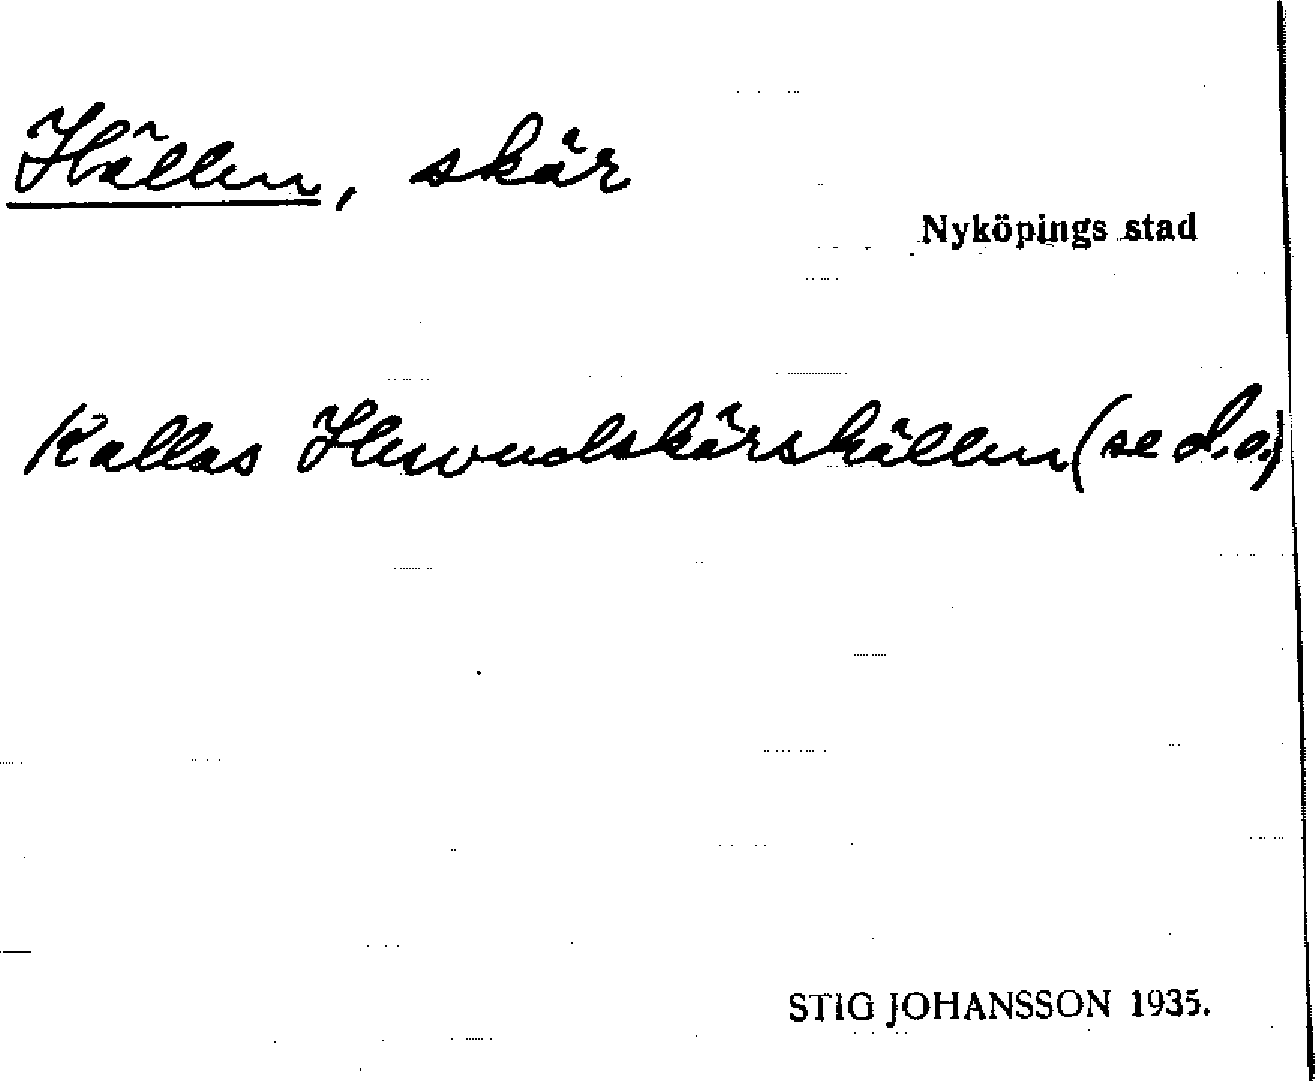 Hällen, skär
Nyköpings stad
Kallas Huvudskärshällen (se d.o.)
STIG JOHANSSON 1935.